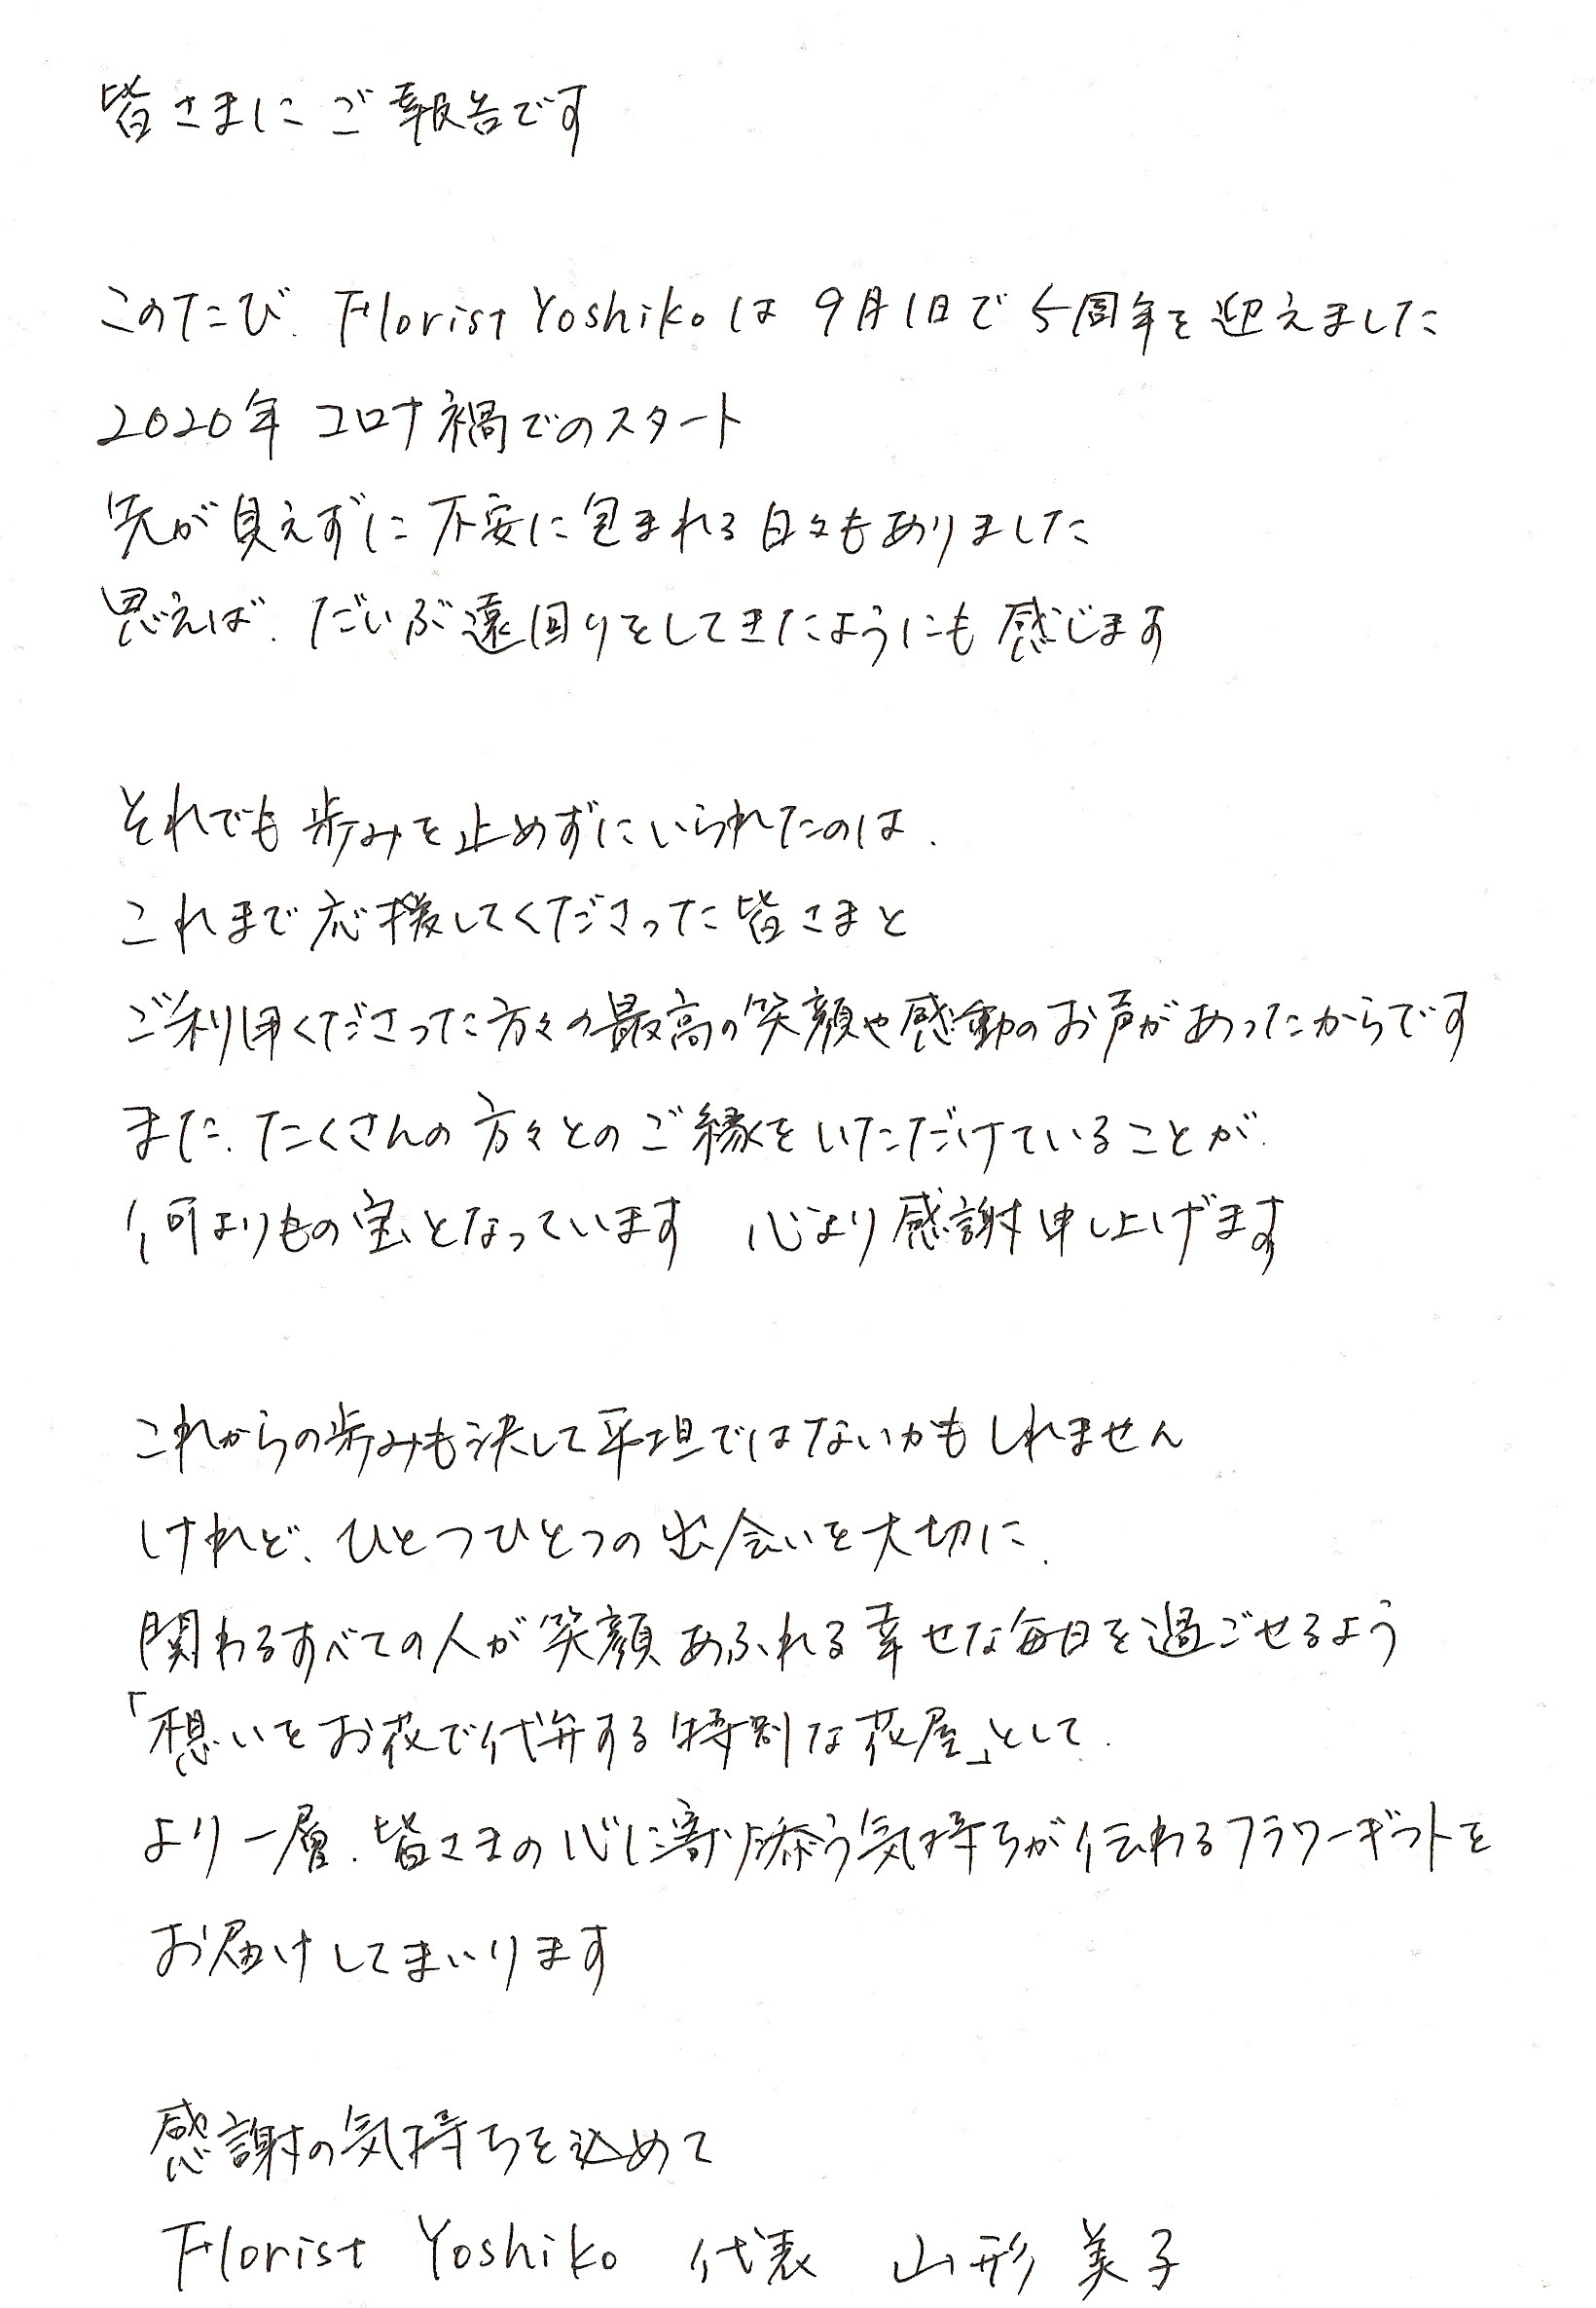 皆さまに ご報告です
このたび、Florist Yoshikoは 9月1日で 5周年を迎えました
2020年 コロナ禍でのスタート
先が見えずに 不安に包まれる日々もありました
思えば、だいぶ遠回りをしてきたようにも感じます
それでも歩みを止めずにいられたのは、
これまで応援してくださった皆さまと
ご利用くださった方々の最高の笑顔や感動のお声があったからです
また、たくさんの方々とのご縁をいただけていることが、
何よりもの宝となっています 心より感謝申し上げます
これからの歩みも決して平坦ではないかもしれません
けれど、ひとつひとつの出会いを大切に、
関わるすべての人が笑顔あふれる幸せな毎日を過ごせるよう
「想いをお花で代弁する特別な花屋」として、
より一層、皆さまの心に寄り添う気持ちが伝わるフラワーギフトを
お届けしてまいります
感謝の気持ちを込めて
Florist Yoshiko 代表 山形 美子